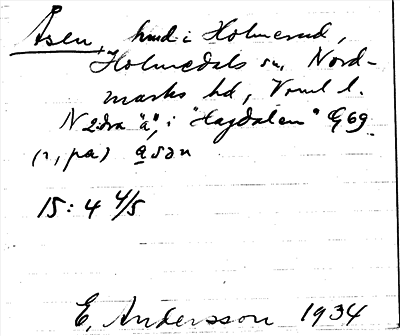 Åsen, hmd i Holmerud,
Holmedals sn, Nord-
marks hd, Vrml l.
N 2:dra "a", i "Hagdalen" G69.
(i, på) åsən
15:4 4/5
E. Andersson 1934